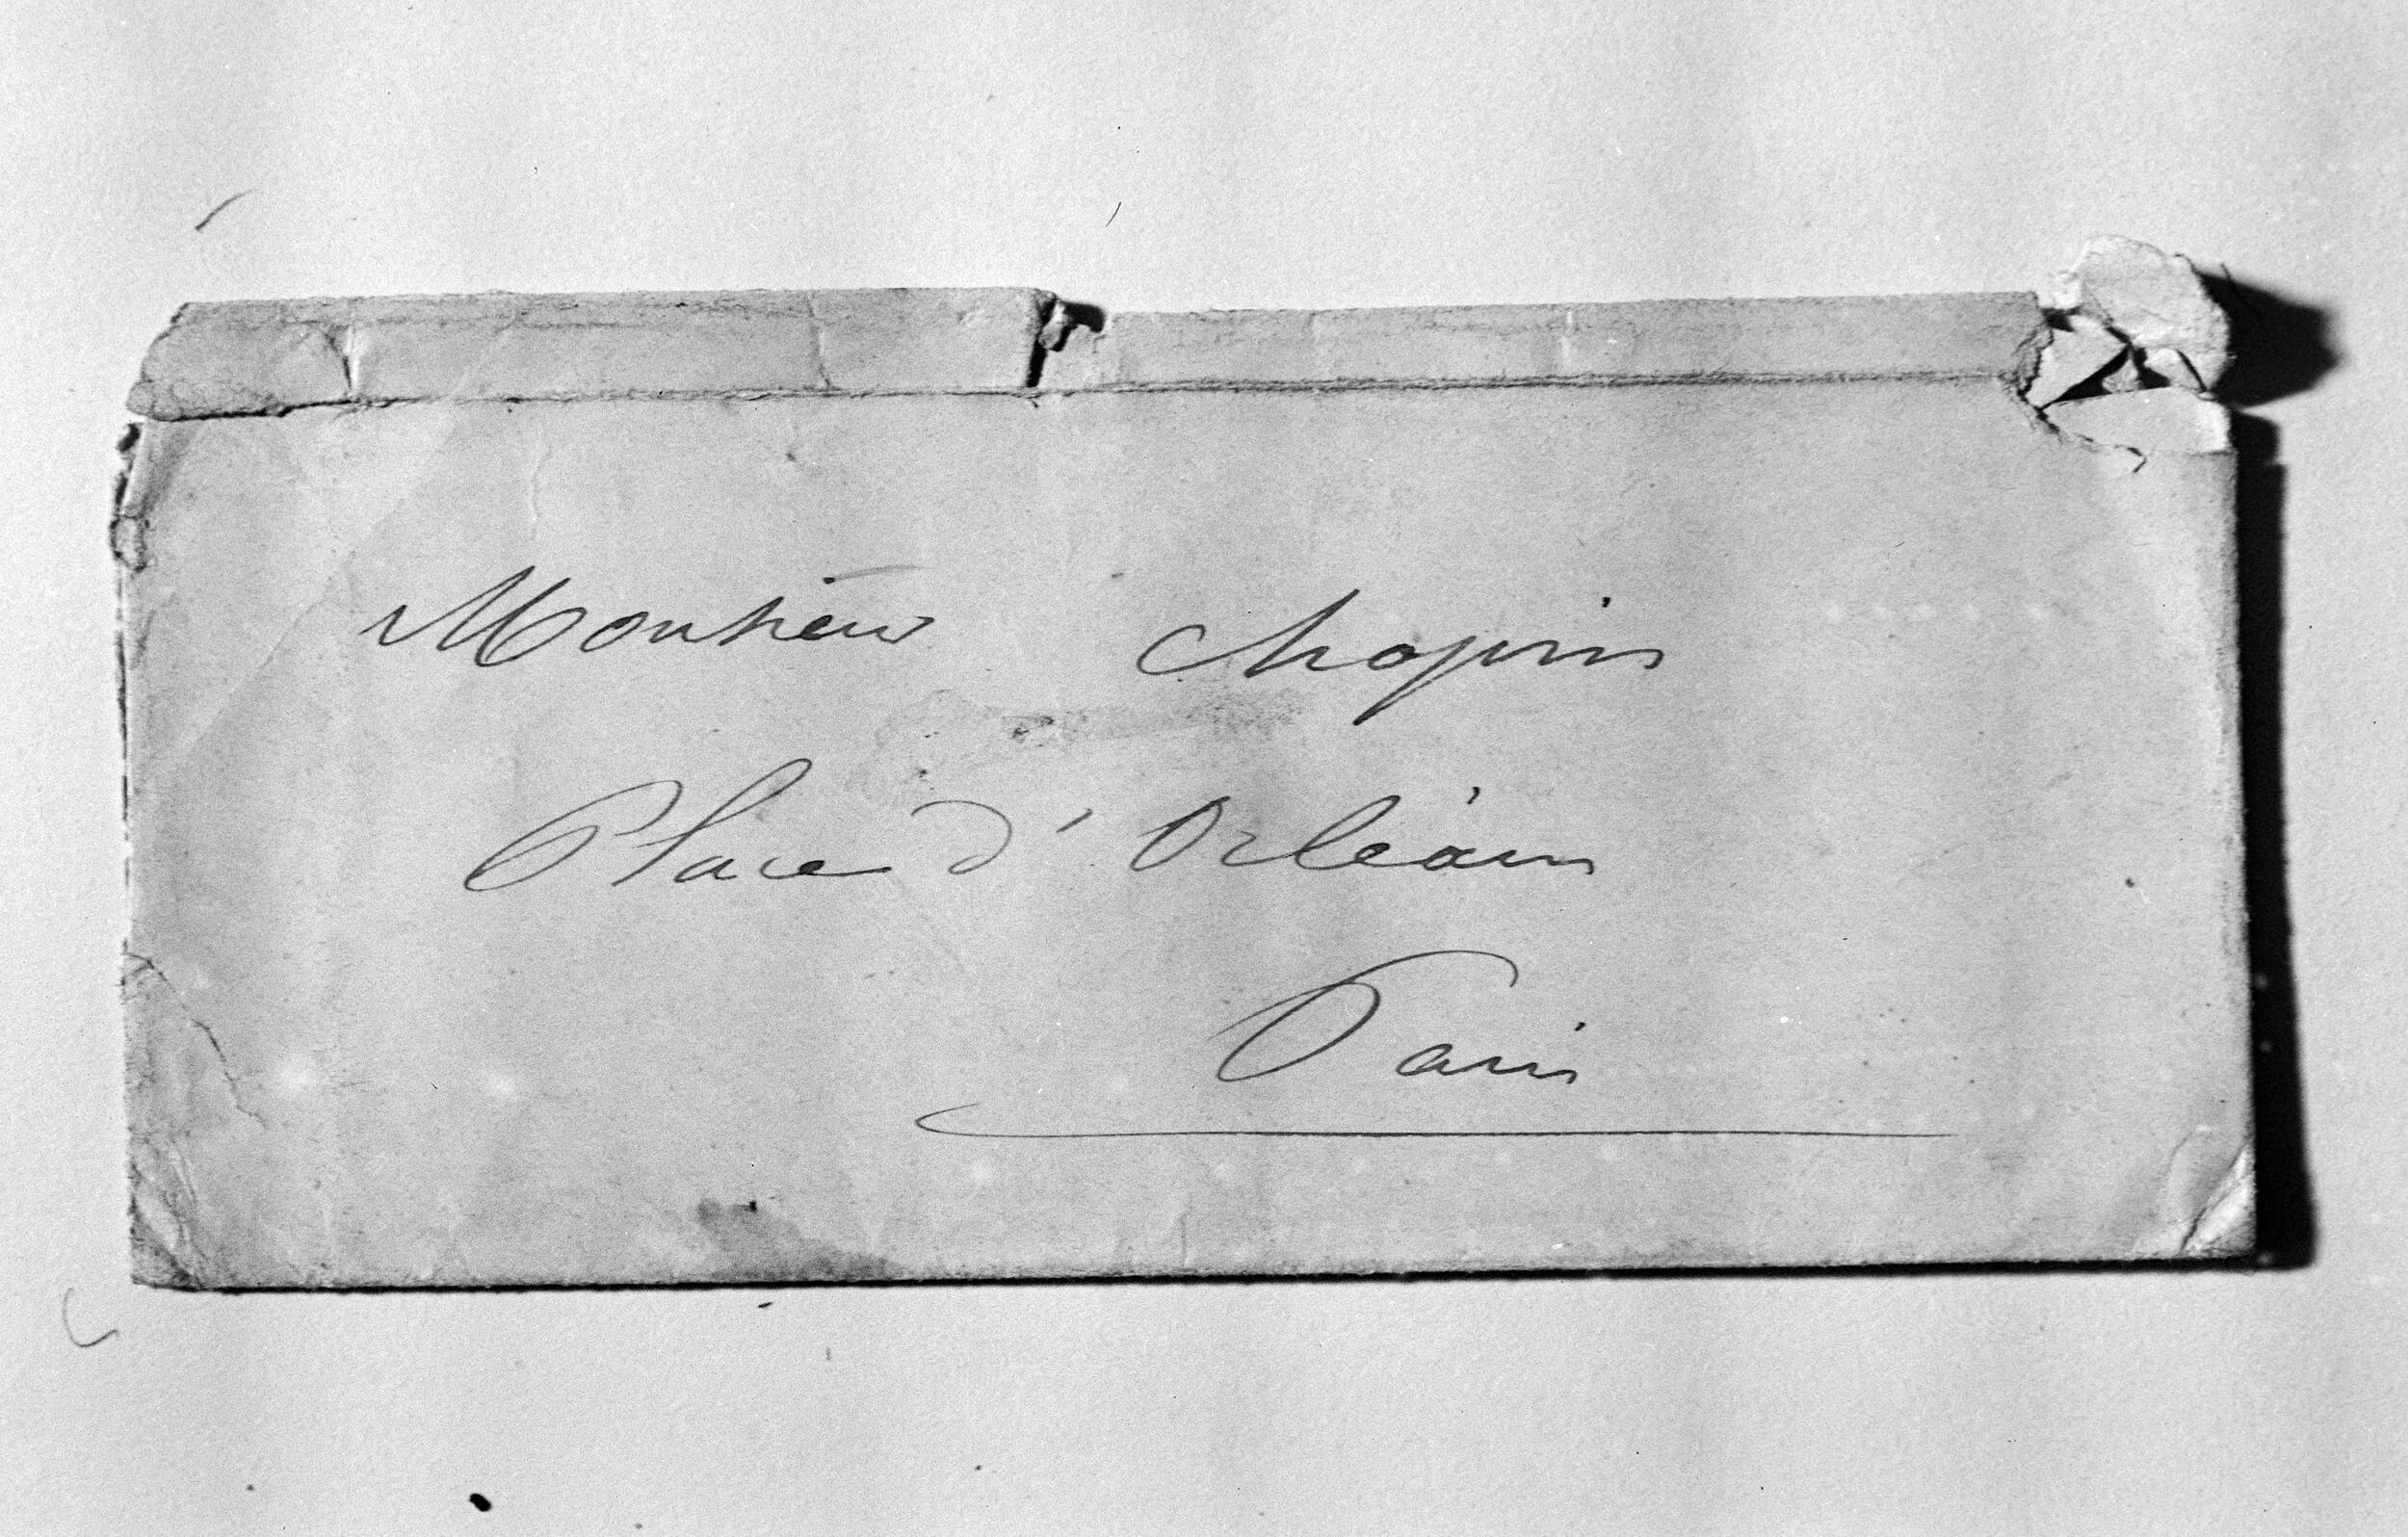 Monsieur Chopin
Place d' Orléans
Paris